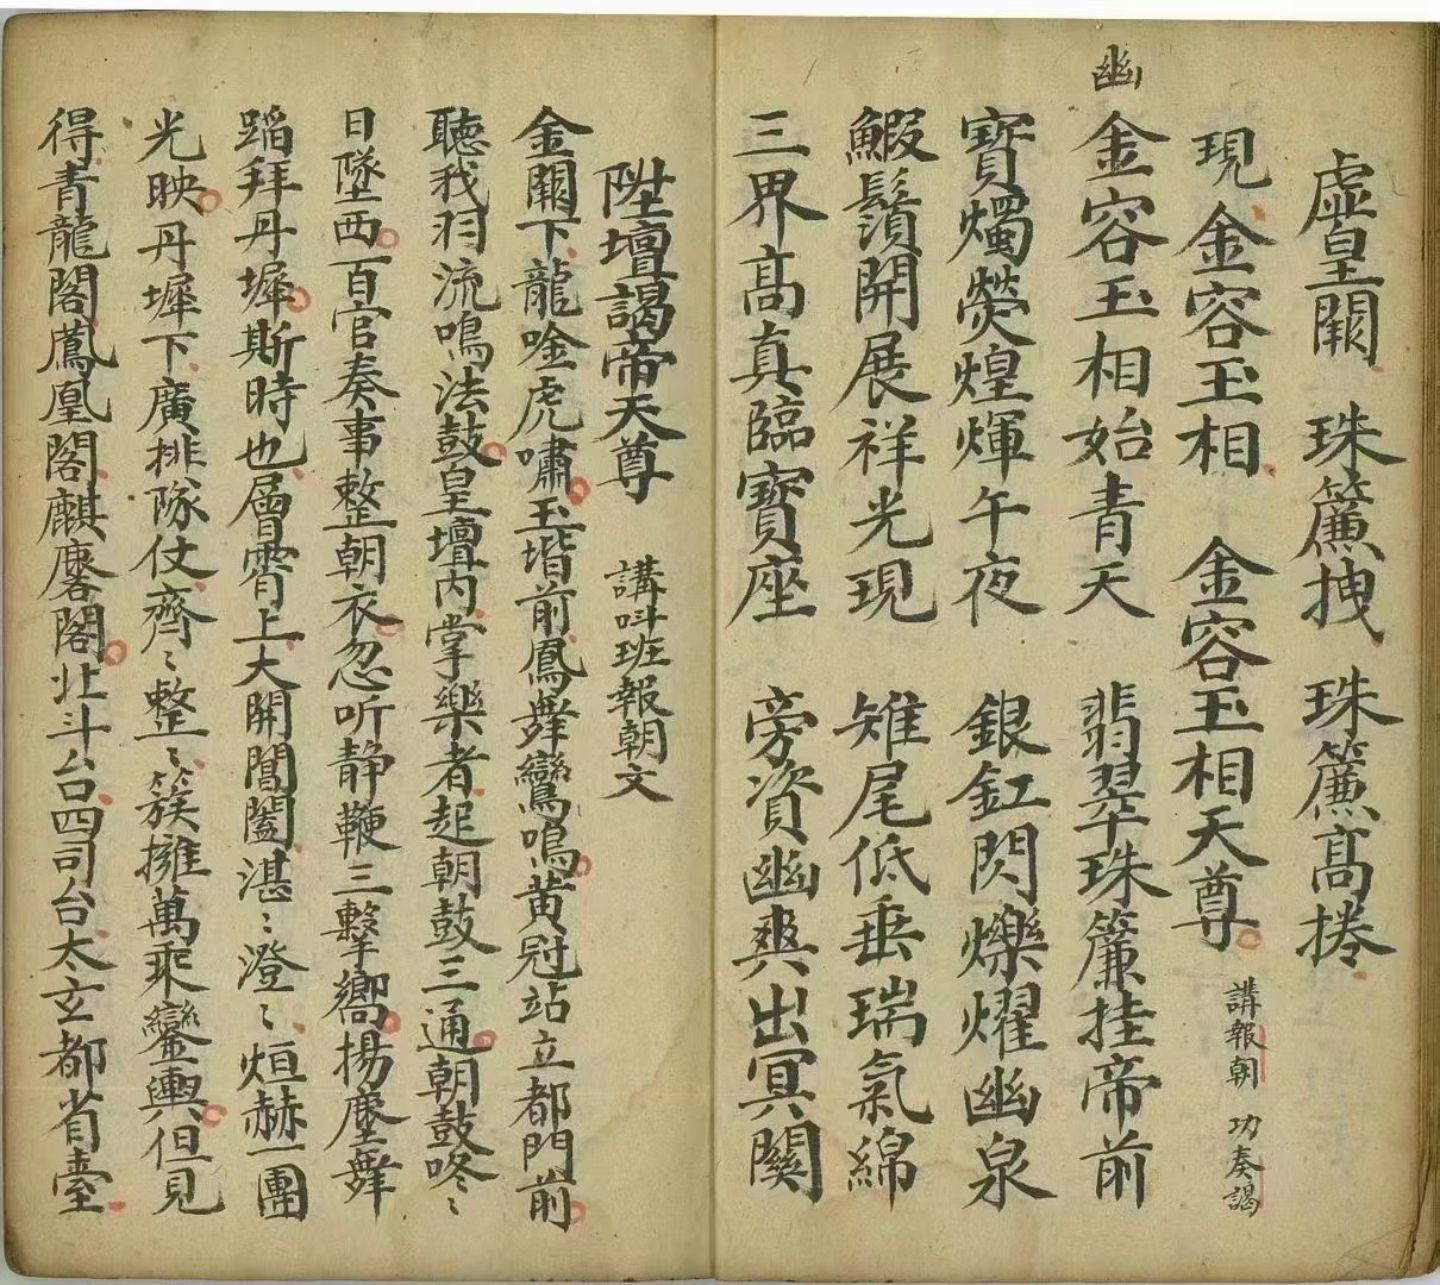 虛皇闕 珠簾拽 珠簾高捲
現金容玉相 金容玉相天尊 講報朝 功奏謁
幽
金容玉相始青天 翡翠珠簾挂帝前
寶燭熒煌煇午夜 銀釭閃爍燿幽泉
鰕鬚開展祥光現 雉尾低垂瑞氣綿
三界高真臨寶座 旁資幽爽出冥關
陞壇謁帝天尊 講呌班報朝文
金闕下龍唫虎嘯玉堦前鳳舞鸞鳴黄冠站立都門前
聽我羽流鳴法鼓皇壇内掌樂者起朝鼓三通朝鼓咚〻
日墜西百官奏事整朝衣忽听静鞭三擊嚮揚塵舞
蹈拜丹墀斯時也層霄上大開閶闔湛〻澄〻烜赫一團
光映丹墀下廣排隊仗齊〻整〻簇擁萬乘鑾輿但見
得青龍閣鳳凰閣麒麐閣北斗台四司台太玄都省臺